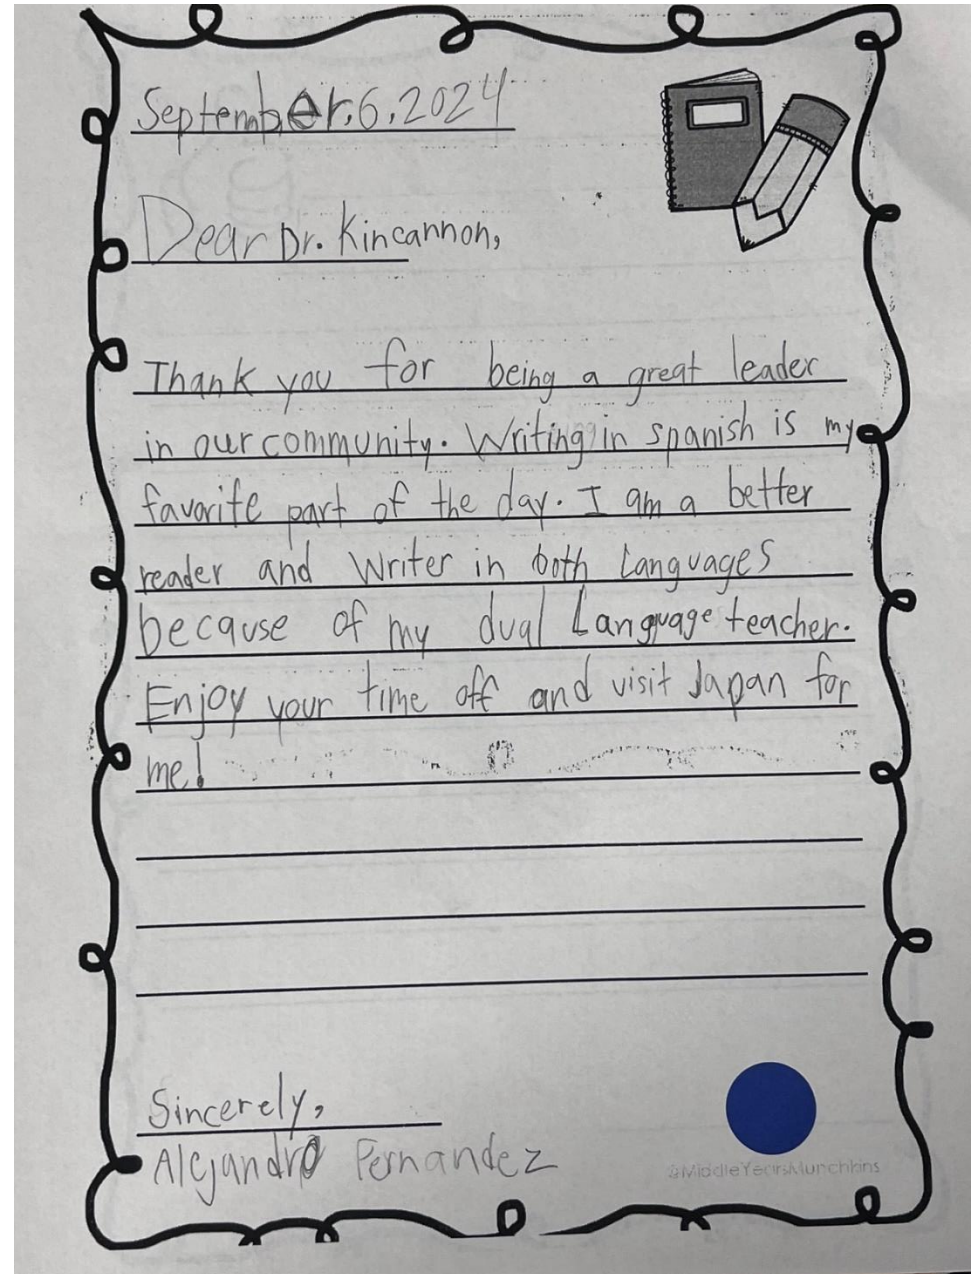 September.6.2024
Dear Dr. Kincannon,
Thank you for being a great leader
in our community. Writing in spanish is my
favorite part of the day. I am a better
reader and Writer in both Languages
because of my dual Language teacher.
Enjoy your time off and visit Japan for
me!
Sincerely,
Alejandro Fernandez
@MiddleYearsMunchkins